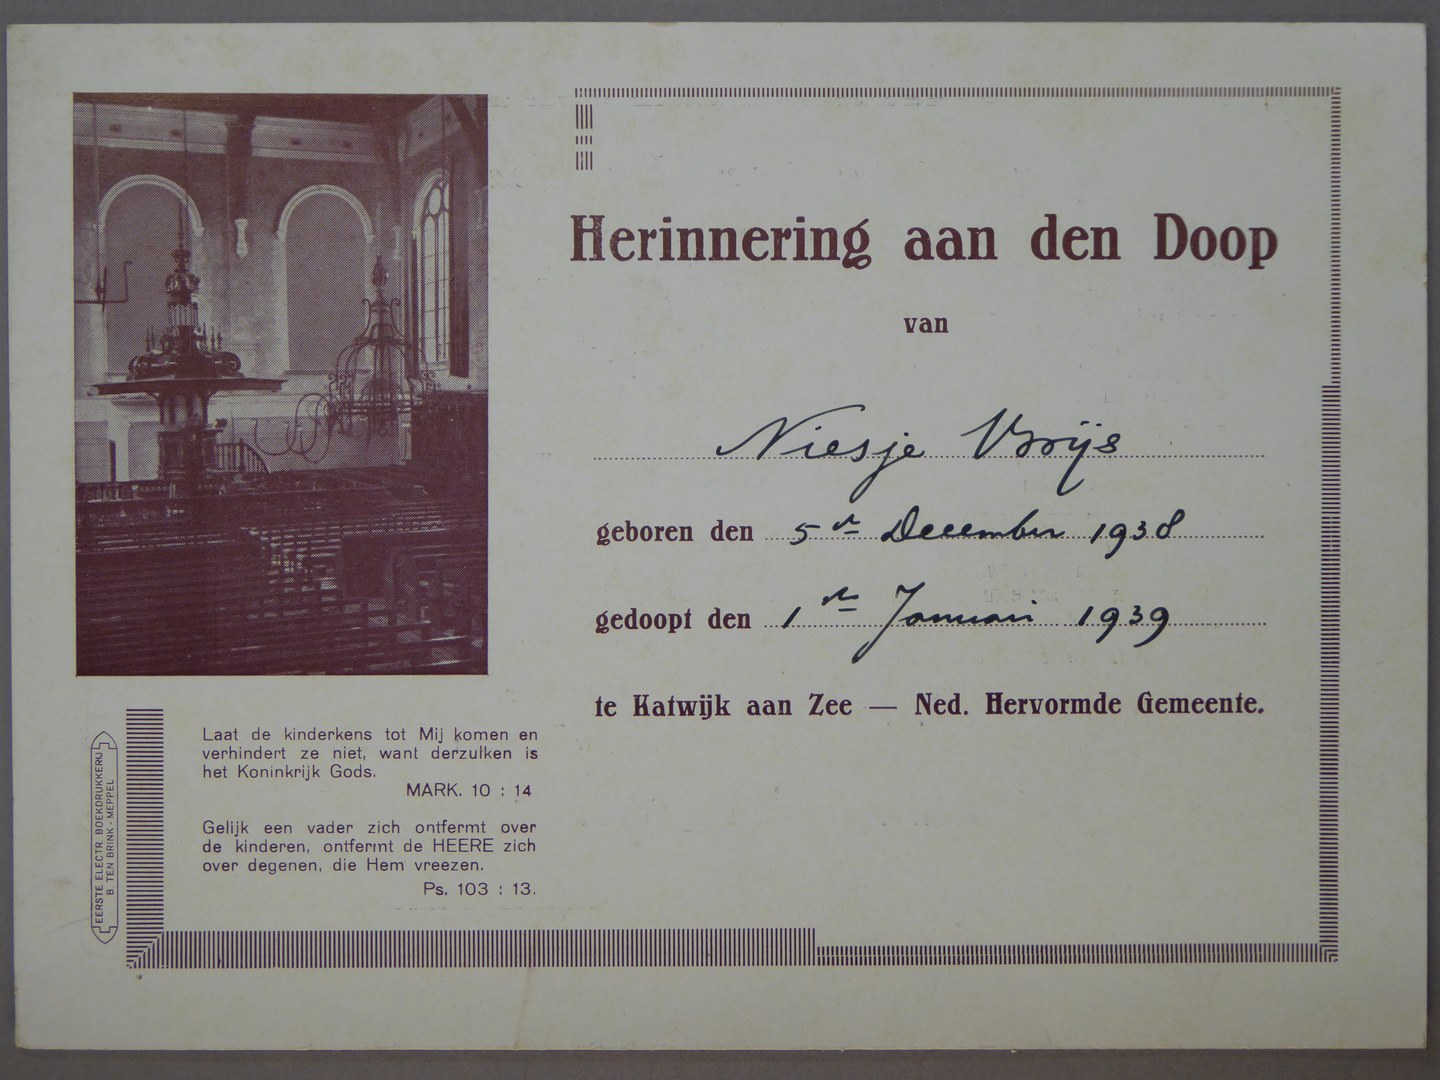 Herinnering aan den Doop
van
Niesje Vrijs
geboren den 5de December 1938
gedoopt den 1ste Januari 1939
te Katwijk aan Zee — Ned. Hervormde Gemeente.
Laat de kinderkens tot Mij komen en
verhindert ze niet, want derzulken is
het Koninkrijk Gods.
MARK. 10 : 14
Gelijk een vader zich ontfermt over
de kinderen, ontfermt de HEERE zich
over degenen, die Hem vreezen.
Ps. 103 : 13.
EERSTE ELECTR. BOEKDRUKKERIJ
B. TEN BRINK - MEPPEL